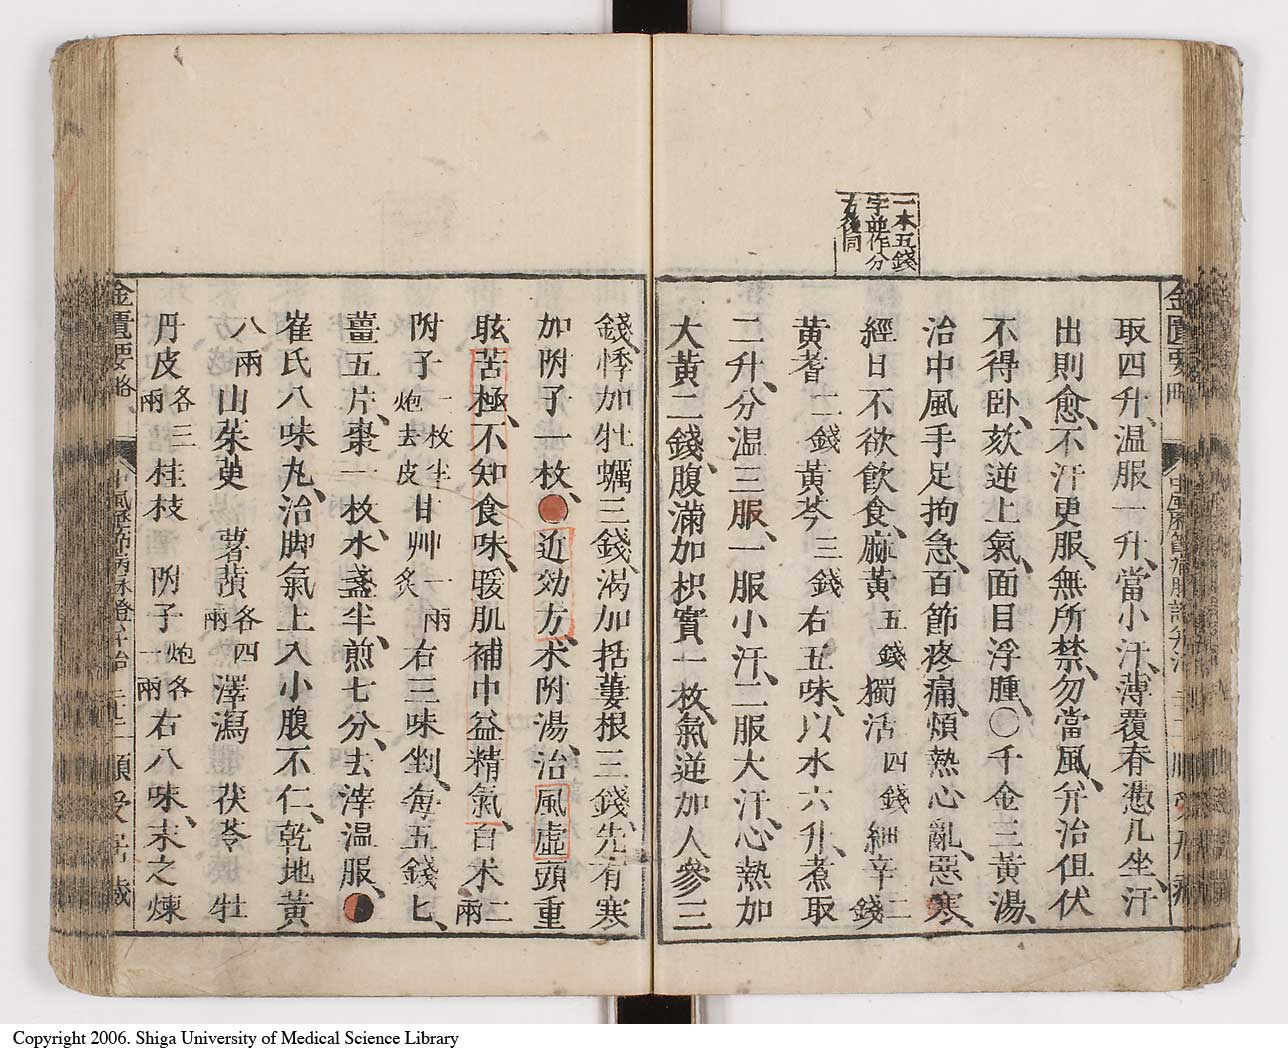 一本五錢
字並作分
方後同
取四升、溫服一升、當小汗、薄覆脊憑几坐、汗
出則愈、不汗更服、無所禁、勿當風、并治但伏
不得臥、欬逆上氣、面目浮腫、○千金三黃湯、
治中風手足拘急、百節疼痛、煩熱心亂、惡寒、
經日不欲飲食、麻黃五錢獨活四錢細辛二錢
黃耆二錢黃芩三錢右五味、以水六升、煮取
二升、分溫三服、一服小汗、二服大汗、心熱加
大黃二錢、腹滿加枳實一枚、氣逆加人參三
錢、悸加牡蠣三錢、渴加括蔞根三錢、先有寒
加附子一枚、●近効方、朮附湯、治風虛頭重
眩苦極、不知食味、暖肌補中益精氣、白朮二兩
附子一枚半炮去皮甘艸一兩炙右三味、剉、每五錢匕、
薑五片、棗一枚、水盞半、煎七分、去滓溫服、●
崔氏八味丸、治脚氣上入小腹不仁、乾地黃
八兩山茱萸薯蕷各四兩澤瀉茯苓牡
丹皮各三兩桂枝附子炮各一兩右八味、末之煉
金匱要略
Copyright 2006. Shiga University of Medical Science Library